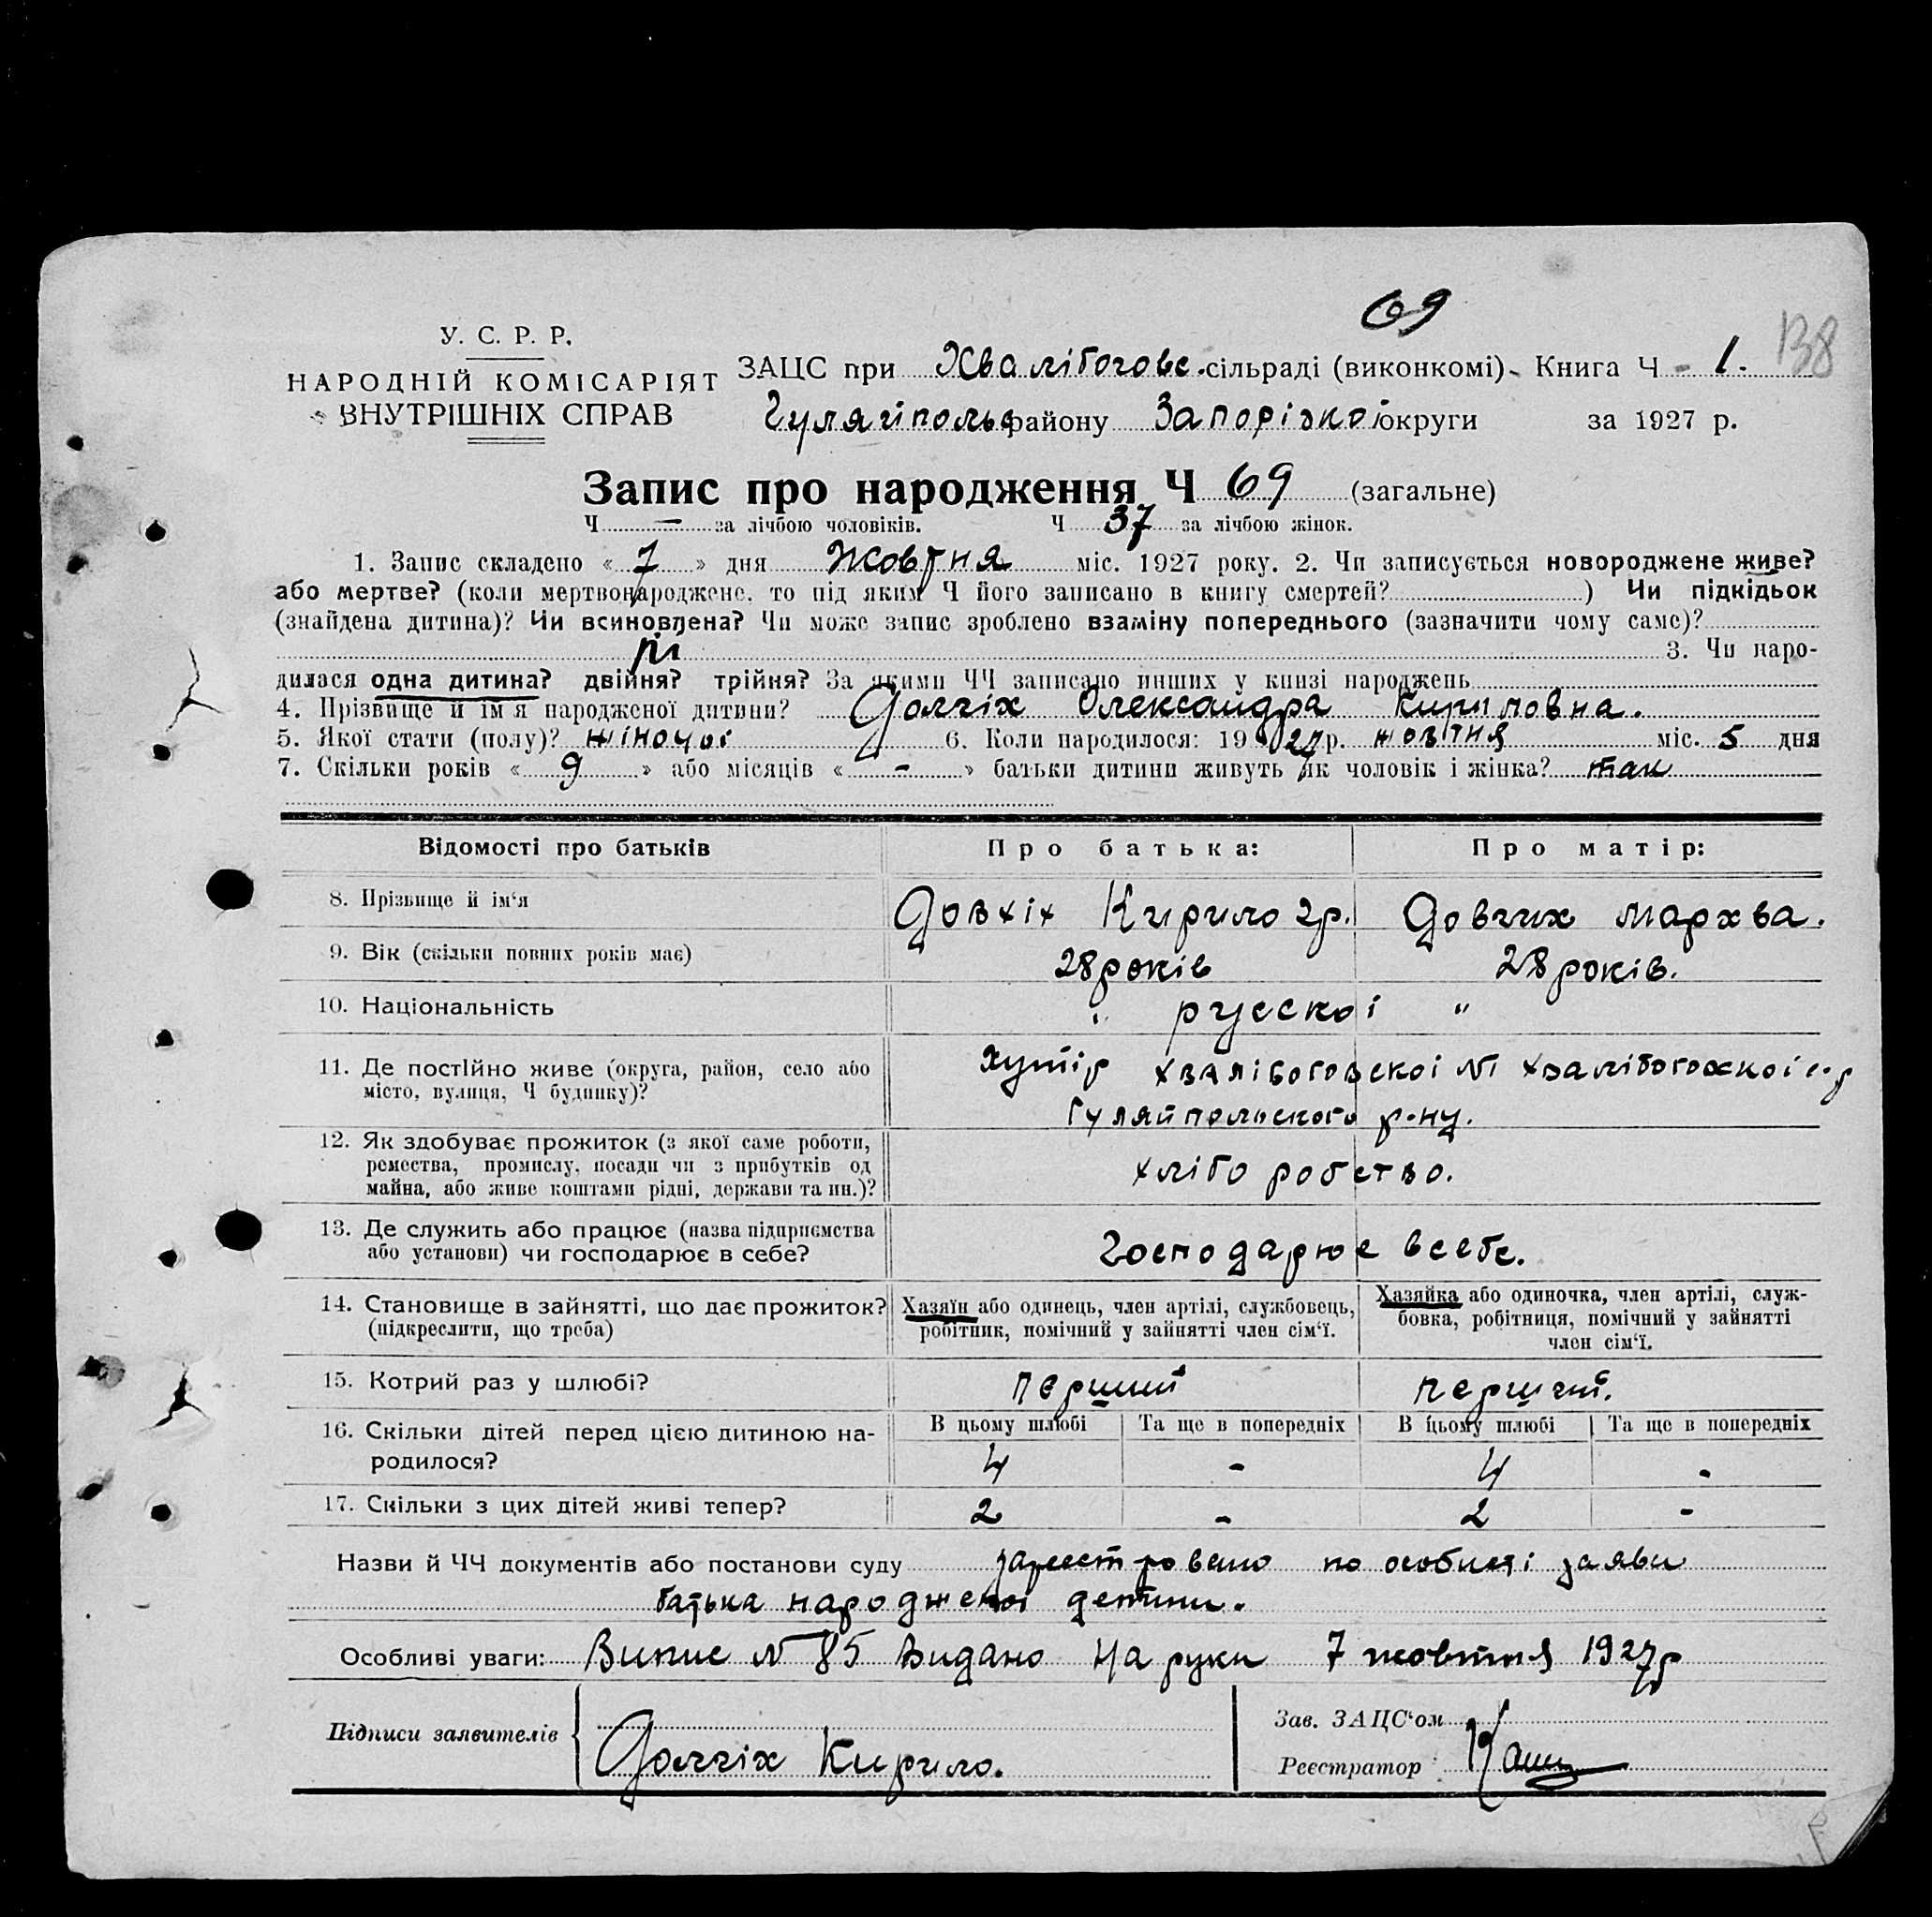 69
138
У. С. Р. Р.
НАРОДНІЙ КОМІСАРІЯТ
ВНУТРІШНІХ СПРАВ
ЗАЦС при Хвалібогове. сільраді (виконкомі) Книга Ч - 1.
Гуляйпольс району Запорізкої округи за 1927 р.
Запис про народження Ч 69 (загальне)
Ч — за лічбою чоловіків. Ч 37 за лічбою жінок.
1. Запис складено « 7 » дня Жовтня міс. 1927 року. 2. Чи записується новороджене живе?
або мертве? (коли мертвонароджене, то під яким Ч його записано в книгу смертей? ) Чи підкідьок
(знайдена дитина)? Чи всиновлена? Чи може запис зроблено взаміну попереднього (зазначити чому саме)?
ні 3. Чи наро-
дилася одна дитина? двійня? трійня? За якими ЧЧ записано инших у книзі народжень
4. Прізвище й ім'я народженої дитини? Долгіх Олександра Кириловна.
5. Якої стати (полу)? жіночої 6. Коли народилося: 1927 р. жовтня міс. 5 дня
7. Скільки років « 9 » або місяців « - » батьки дитини живуть як чоловік і жінка? так
Відомості про батьків Про батька: Про матір:
8. Прізвище й ім'я Довхіх Кирило гр. Довгих Мархва.
9. Вік (скільки повних років має) 28 років 28 років.
10. Національність " руєскої "
11. Де постійно живе (округа, район, село або
місто, вулиця, Ч будинку)?
хутір хвалібоговскої №1
Гуляйпольского р-ну.
12. Як здобуває прожиток (з якої саме роботи,
ремества, промислу, посади чи з прибутків од
майна, або живе коштами рідні, держави та ин.)?
хліборобство.
13. Де служить або працює (назва підприємства
або установи) чи господарює в себе?
Господарює всебе.
14. Становище в зайнятті, що дає прожиток?
(підкреслити, що треба)
Хазяїн або одинець, член артілі, службовець,
робітник, помічний у зайнятті член сім'ї.
Хазяйка або одиночка, член артілі, служ-
бовка, робітниця, помічний у зайнятті
член сім'ї.
15. Котрий раз у шлюбі? перший перший.
16. Скільки дітей перед цією дитиною на-
родилося?
В цьому шлюбі Та ще в попередніх В цьому шлюбі Та ще в попередніх
4 - 4 -
17. Скільки з цих дітей живі тепер? 2 - 2 -
Назви й ЧЧ документів або постанови суду зареєстровано по особисті заяви
батька народженої детини.
Особливі уваги: Випис № 85 Видано на руки 7 жовтня 1927р
Підписи заявителів
Долгіх Кирило.
Зав. ЗАЦС'ом
Реєстратор